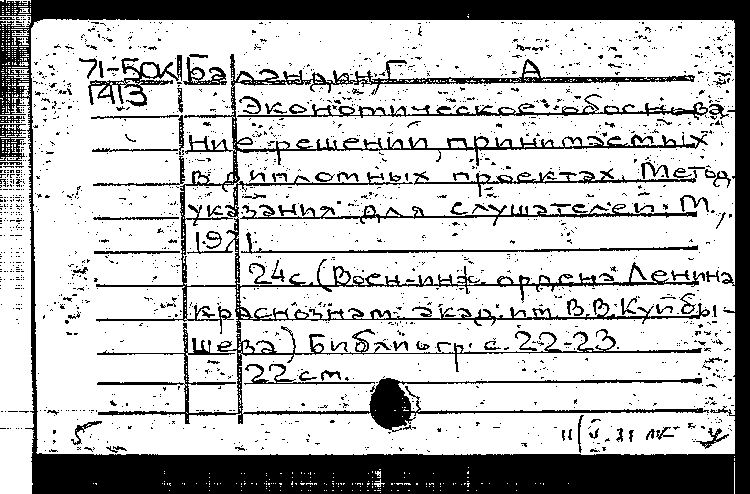 71-БОК Баландин, Г А
1413
Экономическое обоснова-
ние решений, принимаемых
в дипломных проектах. Метод.
указания для слушателей. М.,
1971.
24с. (Воен-инж. ордена Ленина
краснознам. акад. им В.В. Куйбы-
шева) Библиогр. с. 22-23.
22 см.
5